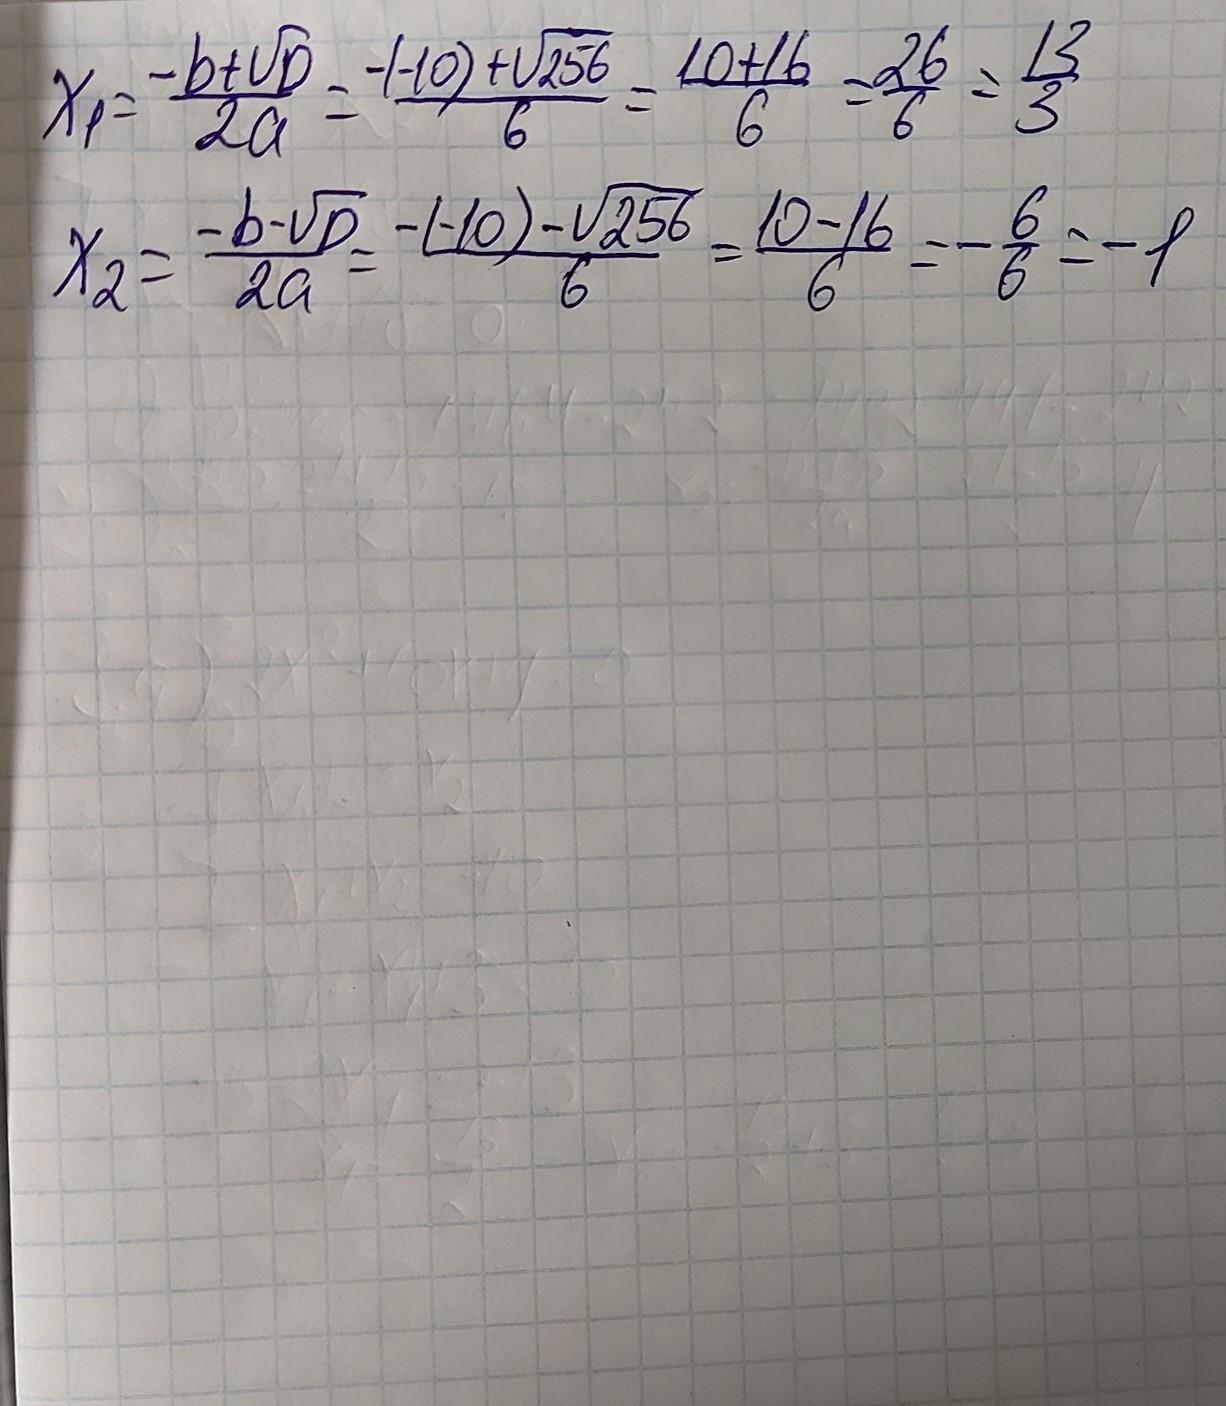 x₁ = (-b+√D)/(2a) = (-(-10)+√256)/6 = (10+16)/6 = 26/6 = 13/3
x₂ = (-b-√D)/(2a) = (-(-10)-√256)/6 = (10-16)/6 = -6/6 = -1